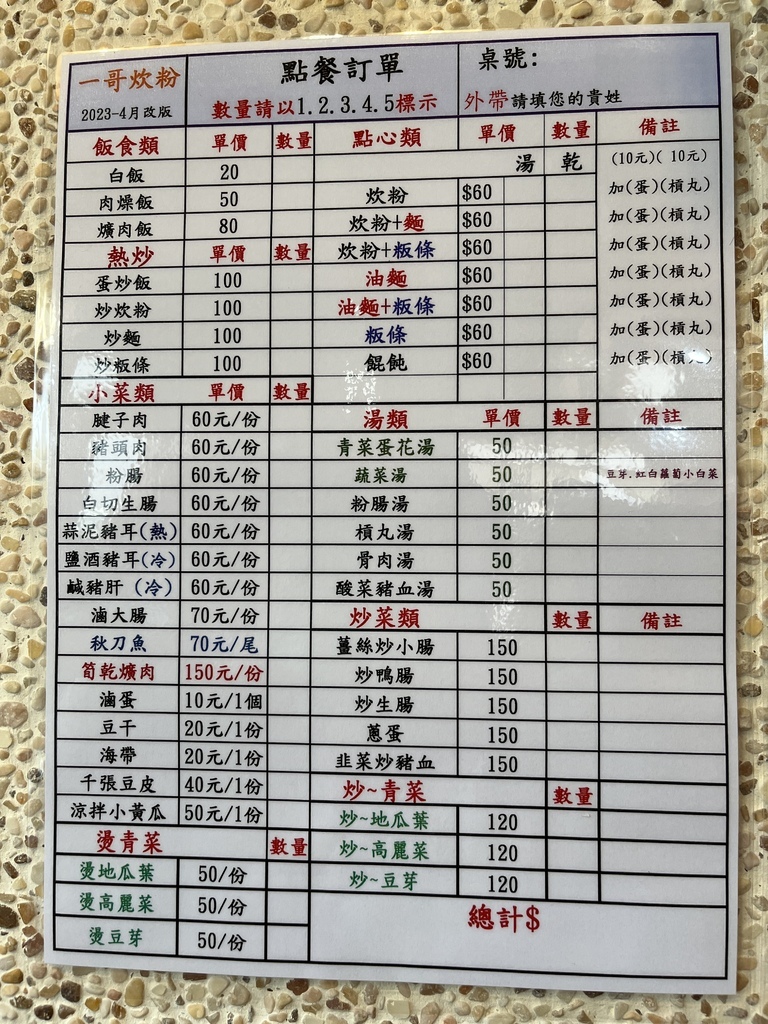 一哥炊粉
2023-4月改版
點餐訂單
數量請以1.2.3.4.5標示
桌號:
外帶請填您的貴姓
飯食類 單價 數量
白飯 20
肉燥飯 50
爌肉飯 80
熱炒 單價 數量
蛋炒飯 100
炒炊粉 100
炒麵 100
炒粄條 100
小菜類 單價 數量
腱子肉 60元/份
豬頭肉 60元/份
粉腸 60元/份
白切生腸 60元/份
蒜泥豬耳(熱) 60元/份
鹽酒豬耳(冷) 60元/份
鹹豬肝 (冷) 60元/份
滷大腸 70元/份
秋刀魚 70元/尾
筍乾爌肉 150元/份
滷蛋 10元/1個
豆干 20元/1份
海帶 20元/1份
千張豆皮 40元/1份
涼拌小黃瓜 50元/1份
燙青菜 數量
燙地瓜葉 50/份
燙高麗菜 50/份
燙豆芽 50/份
點心類 單價 數量 備註
湯 乾 (10元)( 10元)
炊粉 $60 加(蛋)(槓丸)
炊粉+麵 $60 加(蛋)(槓丸)
炊粉+粄條 $60 加(蛋)(槓丸)
油麵 $60 加(蛋)(槓丸)
油麵+粄條 $60 加(蛋)(槓丸)
粄條 $60 加(蛋)(槓丸)
餛飩 $60 加(蛋)(槓丸)
湯類 單價 數量 備註
青菜蛋花湯 50
蔬菜湯 50 豆芽.紅白蘿蔔小白菜
粉腸湯 50
槓丸湯 50
骨肉湯 50
酸菜豬血湯 50
炒菜類 數量 備註
薑絲炒小腸 150
炒鴨腸 150
炒生腸 150
蔥蛋 150
韭菜炒豬血 150
炒~青菜 數量
炒~地瓜葉 120
炒~高麗菜 120
炒~豆芽 120
總計$